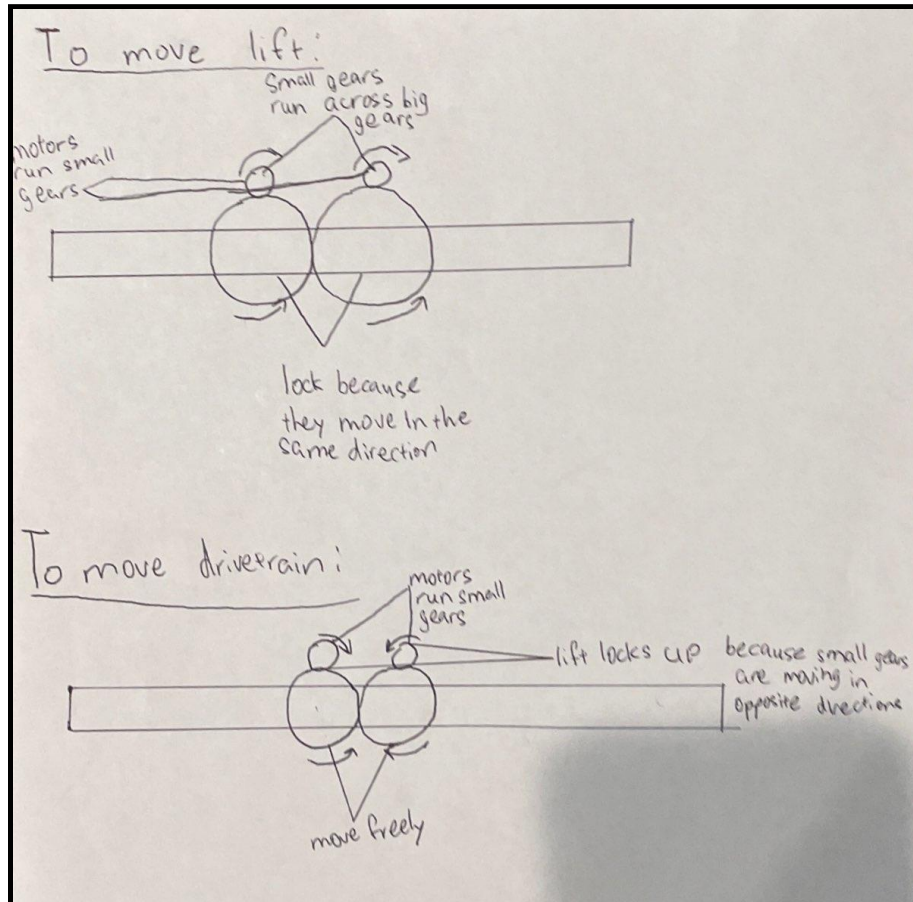 To move lift:
Small gears
run across big
gears
motors
run small
gears
lock because
they move in the
same direction
To move drivetrain:
motors
run small
gears
lift locks up because small gears
are moving in
opposite directions
move freely